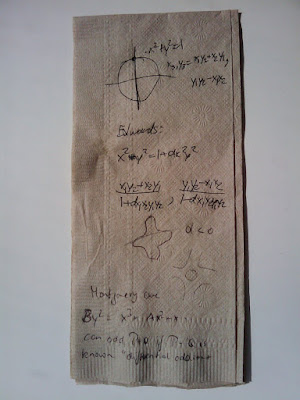 x²+y²=1
x₁y₂+x₂y₁,
y₁y₂-x₁x₂
Edwards:
x²+y²=1+dx²y²
x₁y₂+x₂y₁ / 1+dx₁x₂y₁y₂ , y₁y₂-x₁x₂ / 1-dx₁x₂y₁y₂
d<0
Montgomery
By² = x³+Ax²+x
can add if
known "differential addition